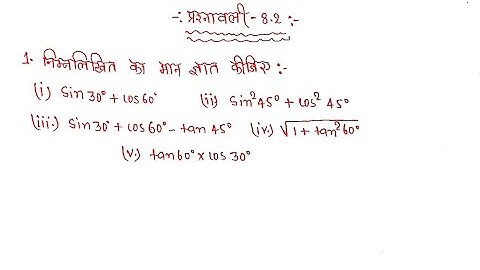 -: प्रश्नावली - 8.2 :-
1. निम्नलिखित का मान ज्ञात कीजिए :-
(i) sin 30° + cos 60° (ii) sin²45° + cos² 45°
(iii.) sin 30° + cos 60° - tan 45° (iv.) √1 + tan²60°
(v.) tan 60° x cos 30°